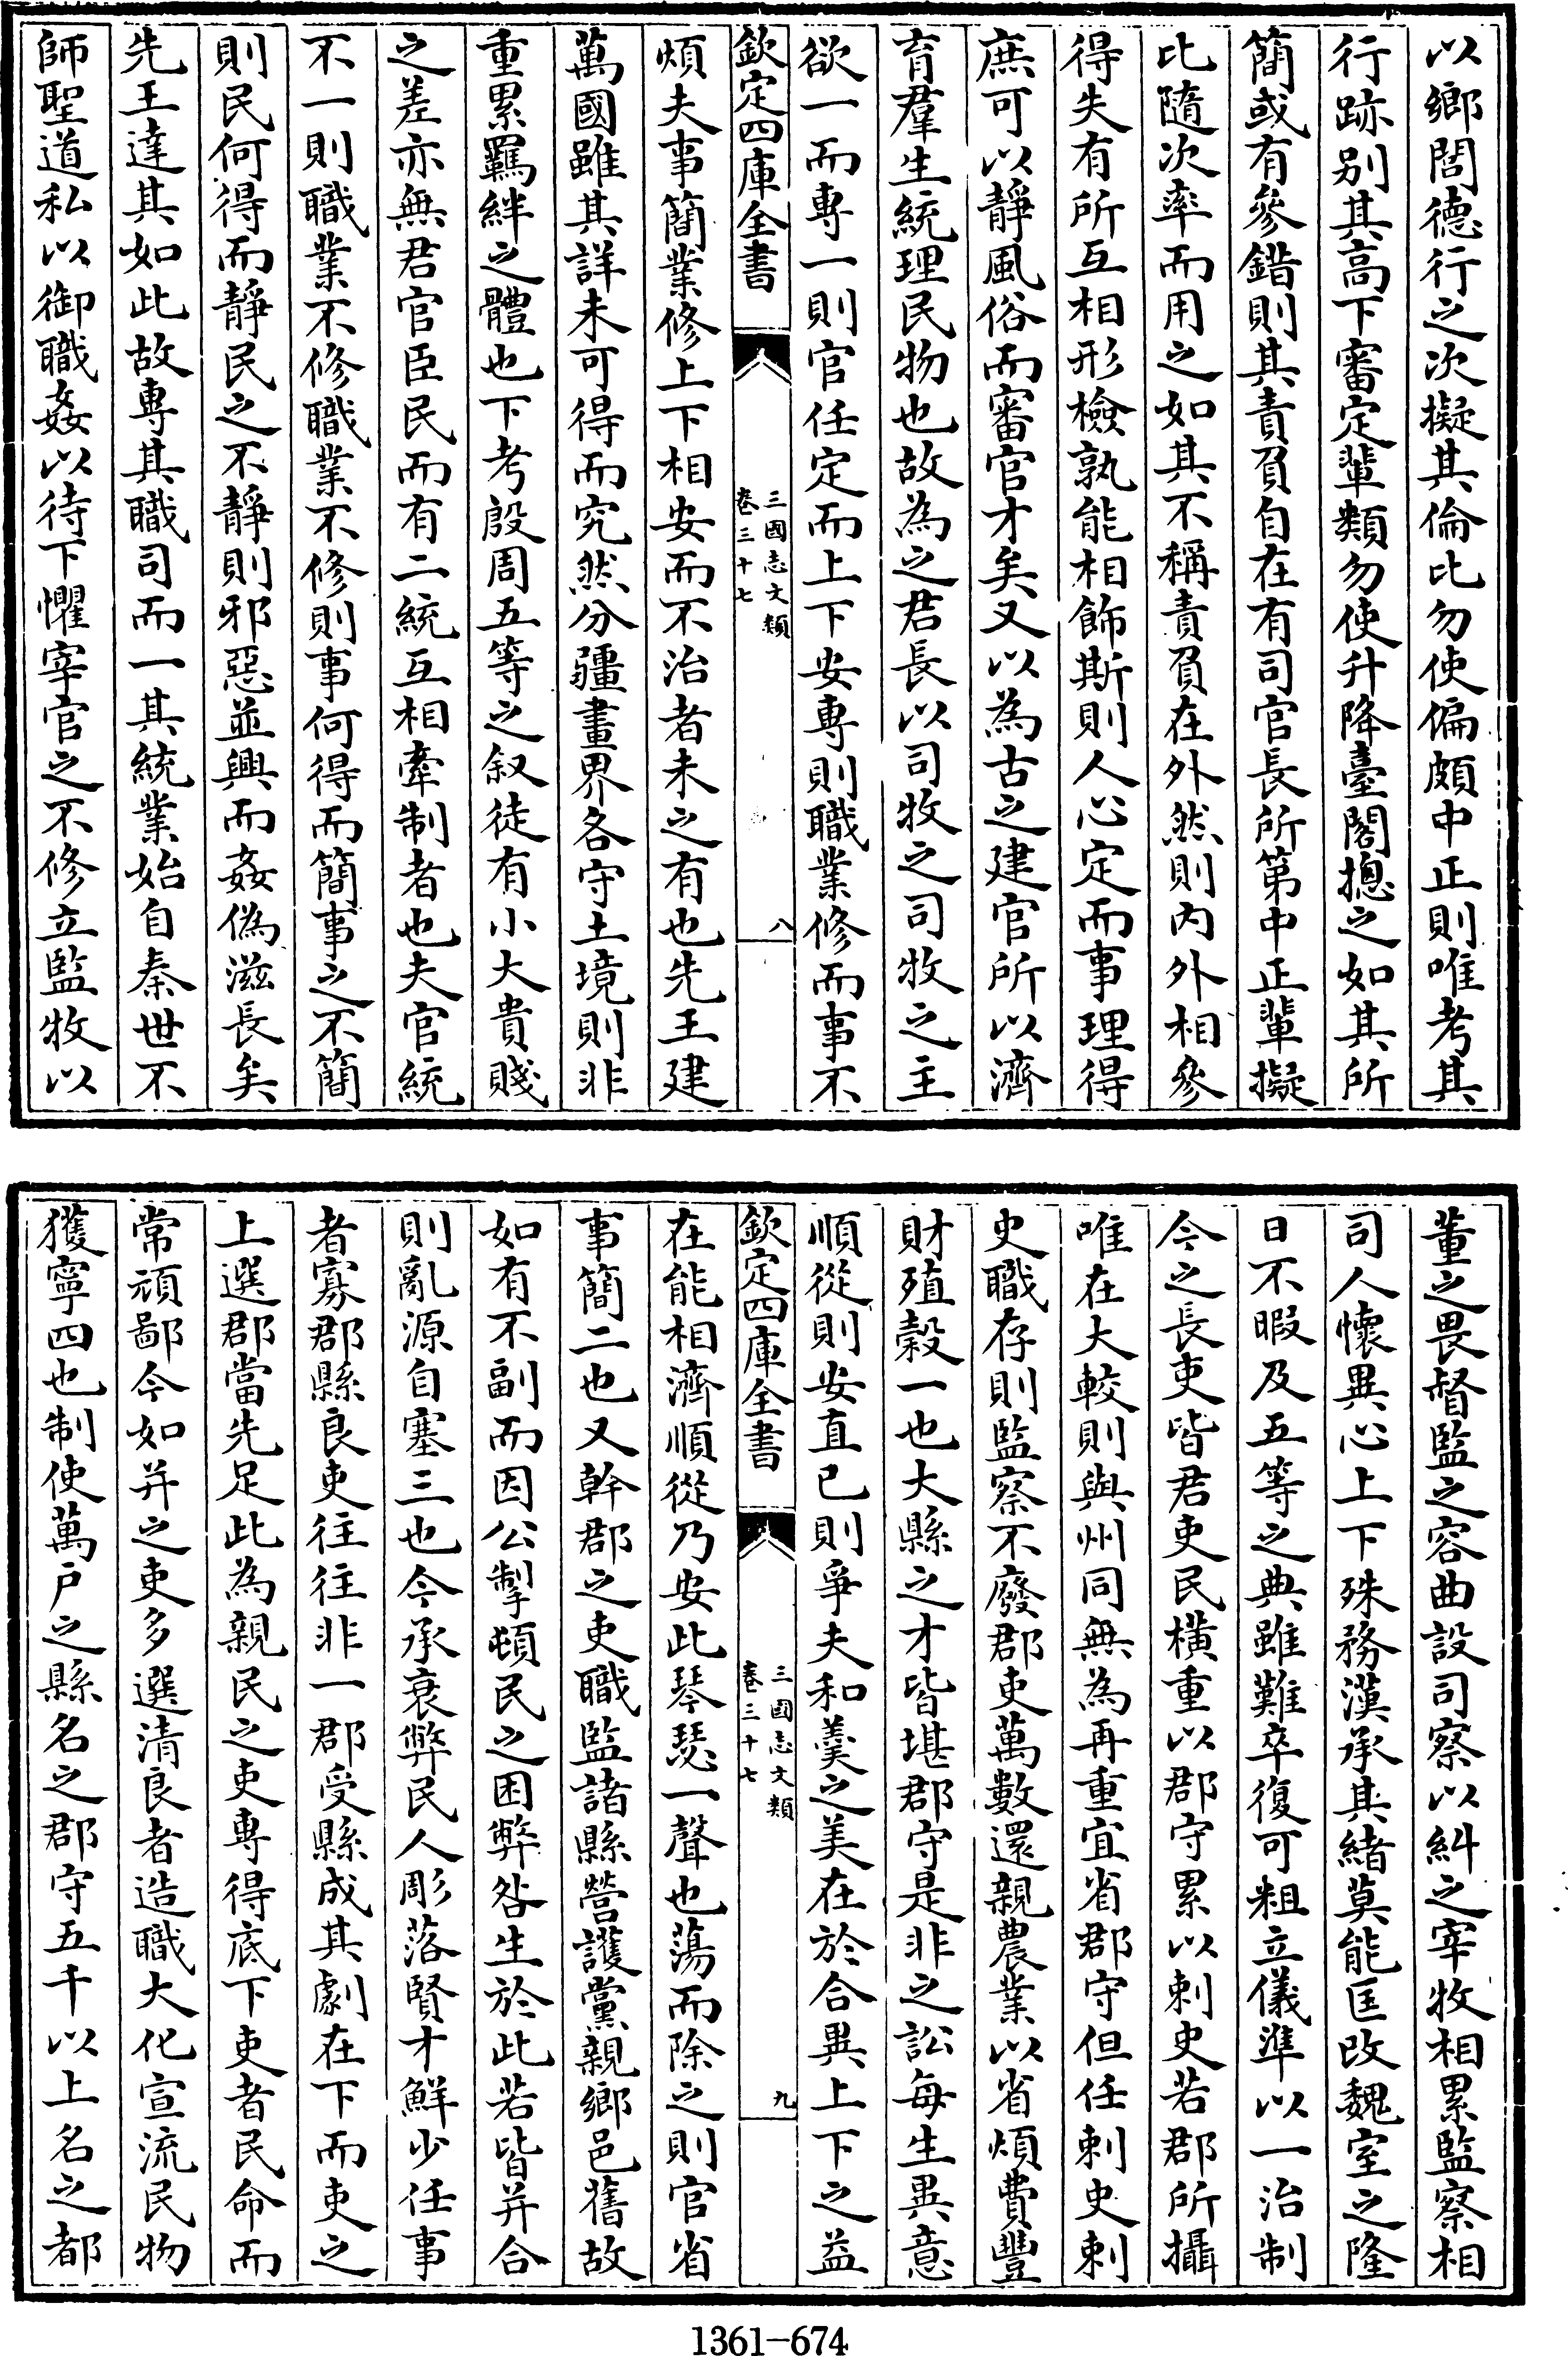 以鄉閭德行之次擬其倫比勿使偏頗中正則唯考其
行跡别其高下審定輩類勿使升降臺閣摠之如其所
簡或有參錯則其責負自在有司官長所第中正輩擬
比隨次率而用之如其不稱責負在外然則内外相參
得失有所互相形檢孰能相飾斯則人心定而事理得
庶可以靜風俗而審官才矣又以為古之建官所以濟
育羣生統理民物也故為之君長以司牧之司牧之主
欲一而專一則官任定而上下安專則職業修而事不
欽定四庫全書
三國志文類
卷三十七
八
煩夫事簡業修上下相安而不治者未之有也先王建
萬國雖其詳未可得而究然分疆畫界各守土境則非
重累羈絆之體也下考殷周五等之叙徒有小大貴賤
之差亦無君官臣民而有二統互相牽制者也夫官統
不一則職業不修職業不修則事何得而簡事之不簡
則民何得而靜民之不靜則邪惡並興而姦偽滋長矣
先王達其如此故專其職司而一其統業始自秦世不
師聖道私以御職姦以待下懼宰官之不修立監牧以
董之畏督監之容曲設司察以糾之宰牧相累監察相
司人懷異心上下殊務漢承其緒莫能匡改魏室之隆
日不暇及五等之典雖難卒復可粗立儀準以一治制
今之長吏皆君吏民橫重以郡守累以刺史若郡所攝
唯在大較則與州同無為再重宜省郡守但任刺史刺
史職存則監察不廢郡吏萬數還親農業以省煩費豐
財殖穀一也大縣之才皆堪郡守是非之訟每生異意
順從則安直已則爭夫和羹之美在於合異上下之益
欽定四庫全書
三國志文類
卷三十七
九
在能相濟順從乃安此琴瑟一聲也蕩而除之則官省
事簡二也又幹郡之吏職監諸縣營護黨親鄉邑舊故
如有不副而因公掣頓民之困弊咎生於此若皆并合
則亂源自塞三也今承衰弊民人彫落賢才鮮少任事
者寡郡縣良吏往往非一郡受縣成其劇在下而吏之
上選郡當先足此為親民之吏專得底下吏者民命而
常頑鄙今如并之吏多選清良者造職大化宣流民物
獲寧四也制使萬戶之縣名之郡守五千以上名之都
1361-674